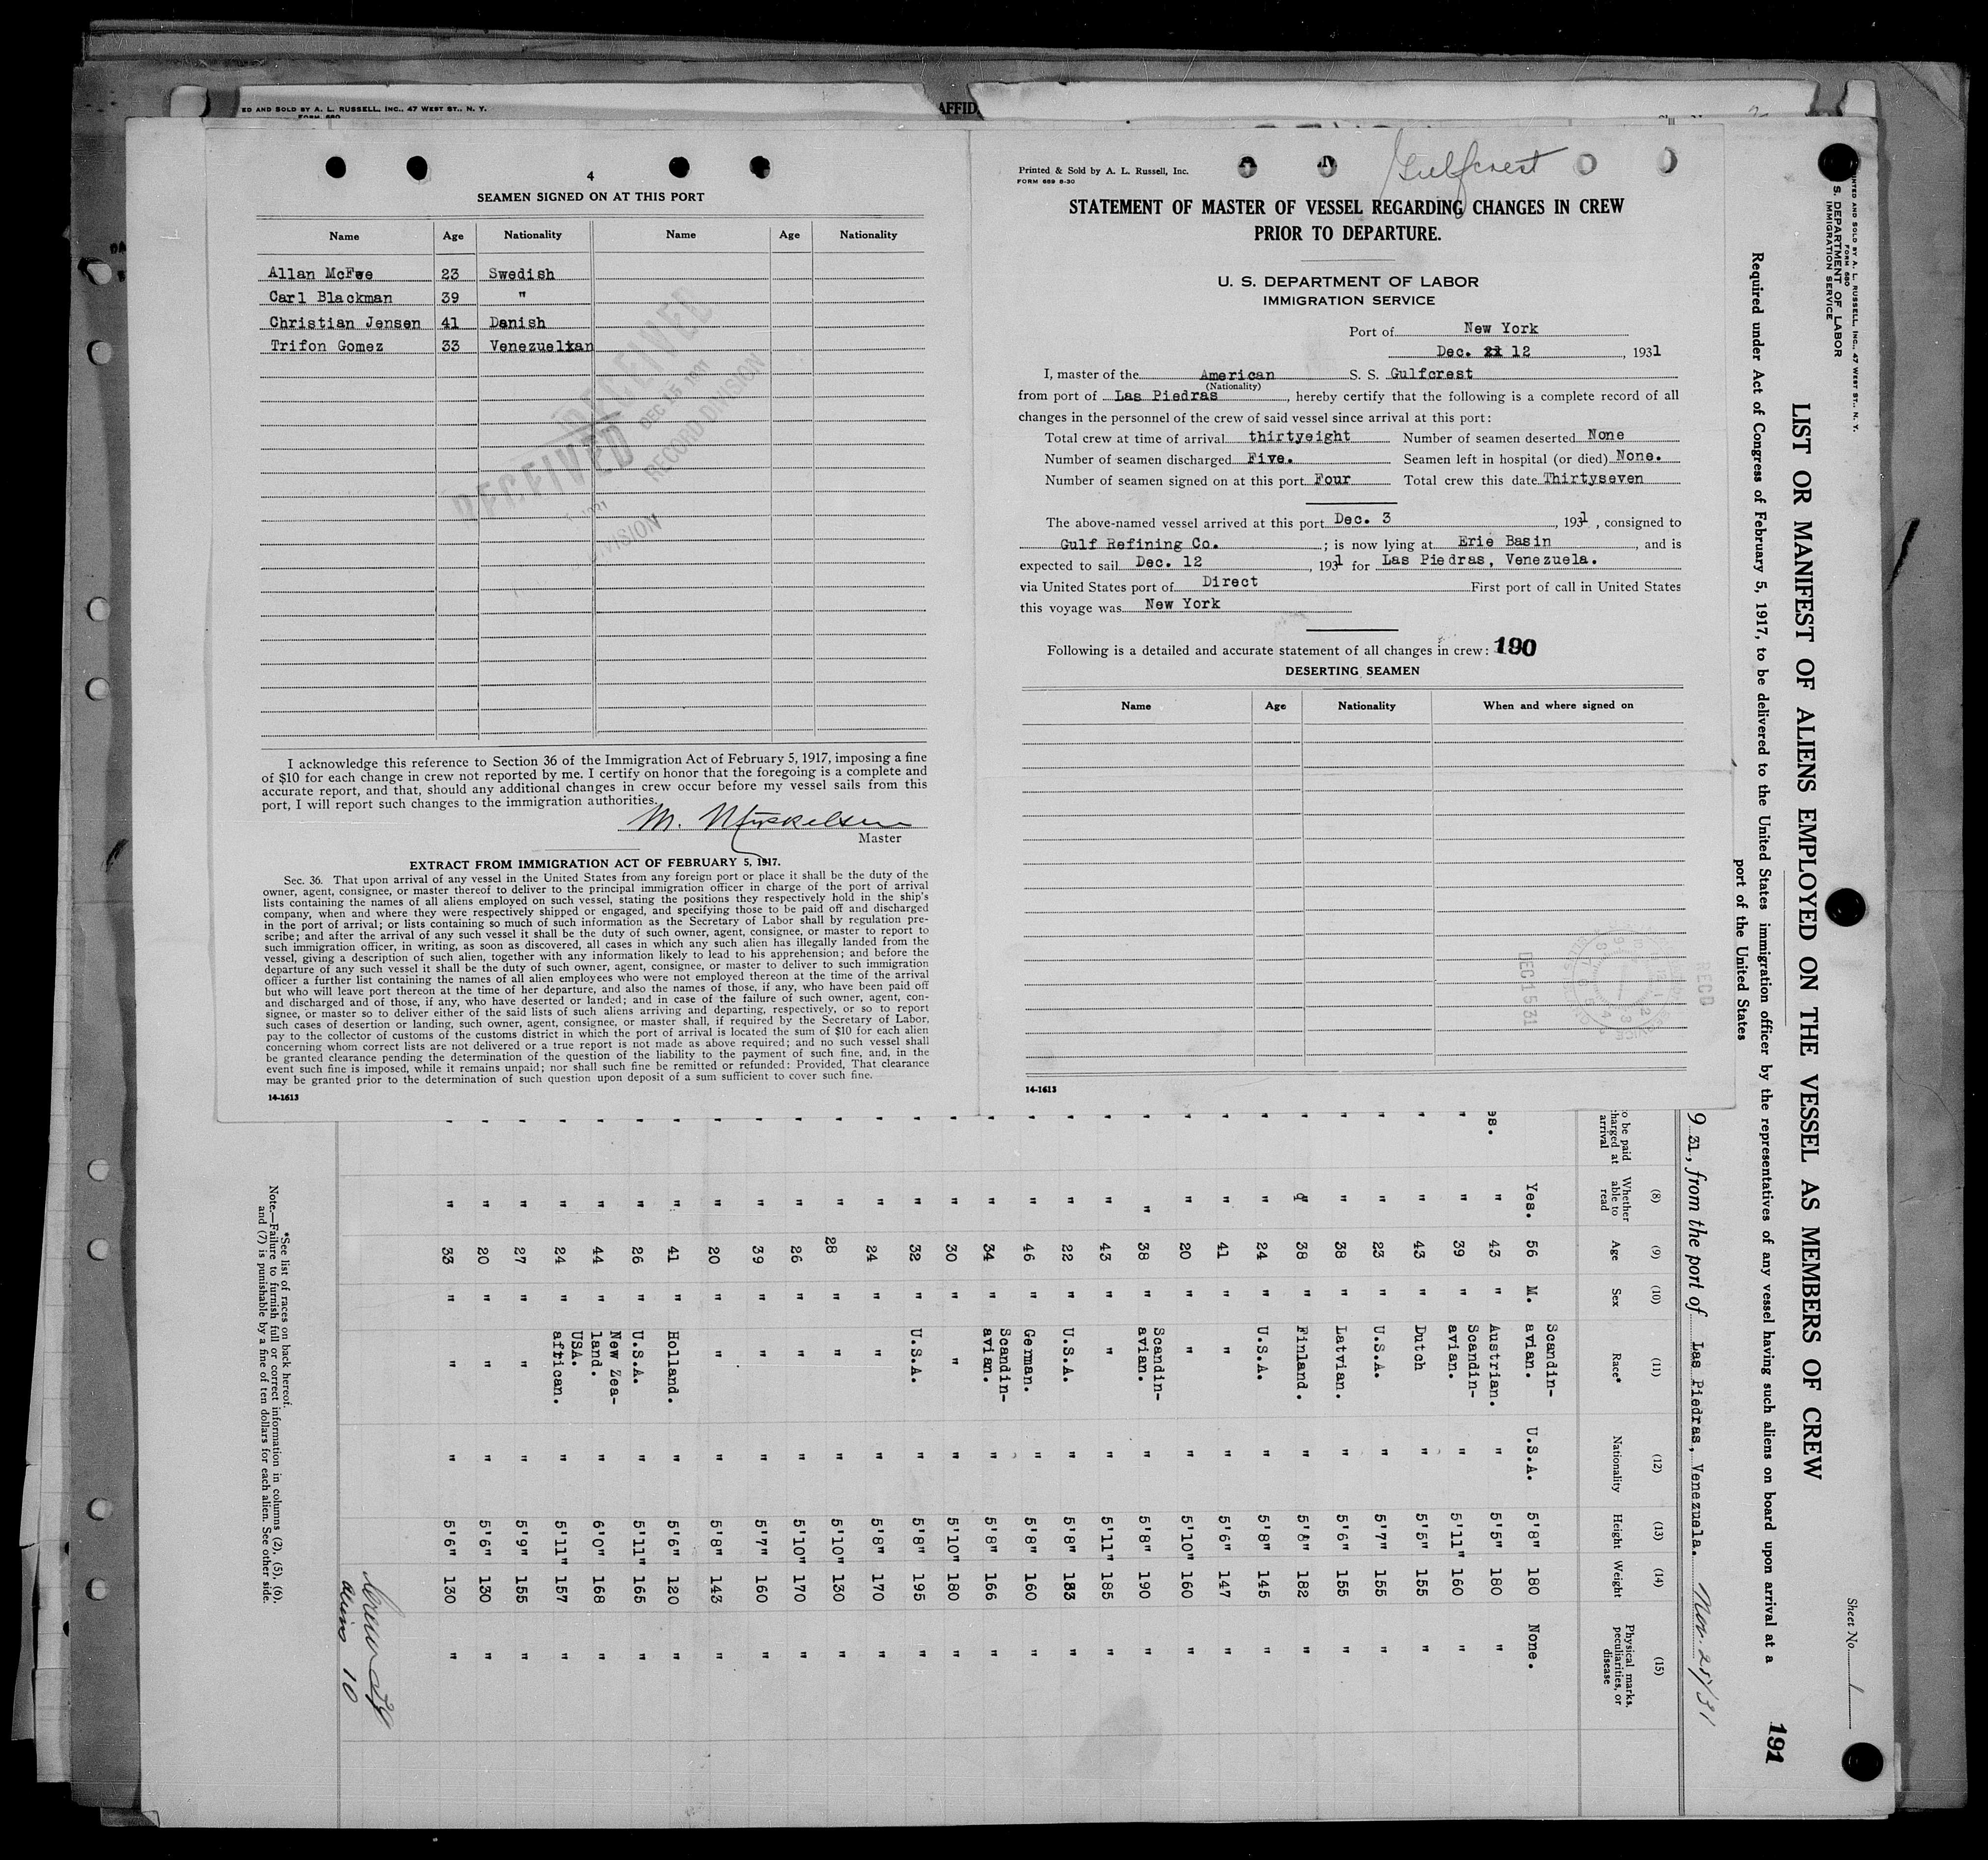 ED AND SOLD BY A. L. RUSSELL, INC., 47 WEST ST., N. Y.
FORM 680
AFFID
4
SEAMEN SIGNED ON AT THIS PORT
Name Age Nationality Name Age Nationality
Allan McFee 23 Swedish
Carl Blackman 39 "
Christian Jensen 41 Danish
Trifon Gomez 33 Venezuelian
RECEIVED
DEC 15 1931
RECORD DIVISION
RECEIVED
1931
DIVISION
I acknowledge this reference to Section 36 of the Immigration Act of February 5, 1917, imposing a fine
of $10 for each change in crew not reported by me. I certify on honor that the foregoing is a complete and
accurate report, and that, should any additional changes in crew occur before my vessel sails from this
port, I will report such changes to the immigration authorities.
M.
Master
EXTRACT FROM IMMIGRATION ACT OF FEBRUARY 5, 1917.
Sec. 36. That upon arrival of any vessel in the United States from any foreign port or place it shall be the duty of the
owner, agent, consignee, or master thereof to deliver to the principal immigration officer in charge of the port of arrival
lists containing the names of all aliens employed on such vessel, stating the positions they respectively hold in the ship's
company, when and where they were respectively shipped or engaged, and specifying those to be paid off and discharged
in the port of arrival; or lists containing so much of such information as the Secretary of Labor shall by regulation pre-
scribe; and after the arrival of any such vessel it shall be the duty of such owner, agent, consignee, or master to report to
such immigration officer, in writing, as soon as discovered, all cases in which any such alien has illegally landed from the
vessel, giving a description of such alien, together with any information likely to lead to his apprehension; and before the
departure of any such vessel it shall be the duty of such owner, agent, consignee, or master to deliver to such immigration
officer a further list containing the names of all alien employees who were not employed thereon at the time of the arrival
but who will leave port thereon at the time of her departure, and also the names of those, if any, who have been paid off
and discharged and of those, if any, who have deserted or landed; and in case of the failure of such owner, agent, con-
signee, or master so to deliver either of the said lists of such aliens arriving and departing, respectively, or so to report
such cases of desertion or landing, such owner, agent, consignee, or master shall, if required by the Secretary of Labor,
pay to the collector of customs of the customs district in which the port of arrival is located the sum of $10 for each alien
concerning whom correct lists are not delivered or a true report is not made as above required; and no such vessel shall
be granted clearance pending the determination of the question of the liability to the payment of such fine, and, in the
event such fine is imposed, while it remains unpaid; nor shall such fine be remitted or refunded: Provided, That clearance
may be granted prior to the determination of such question upon deposit of a sum sufficient to cover such fine.
14-1613
Printed & Sold by A. L. Russell, Inc.
FORM 689 6-30
Gulfcrest
STATEMENT OF MASTER OF VESSEL REGARDING CHANGES IN CREW
PRIOR TO DEPARTURE.
U. S. DEPARTMENT OF LABOR
IMMIGRATION SERVICE
Port of New York
Dec. 12, 1931
I, master of the American S. S. Gulfcrest
(Nationality)
from port of Las Piedras, hereby certify that the following is a complete record of all
changes in the personnel of the crew of said vessel since arrival at this port:
Total crew at time of arrival thirtyeight Number of seamen deserted None
Number of seamen discharged Five. Seamen left in hospital (or died) None.
Number of seamen signed on at this port Four Total crew this date Thirtyseven
The above-named vessel arrived at this port Dec. 3, 1931, consigned to
Gulf Refining Co.; is now lying at Erie Basin, and is
expected to sail Dec. 12, 1931 for Las Piedras, Venezuela.
via United States port of Direct First port of call in United States
this voyage was New York
Following is a detailed and accurate statement of all changes in crew: 190
DESERTING SEAMEN
Name Age Nationality When and where signed on
DEC 15 31
RECD
14-1613
PRINTED AND SOLD BY A. L. RUSSELL, INC., 47 WEST ST., N. Y.
FORM 680
S. DEPARTMENT OF LABOR
IMMIGRATION SERVICE
Sheet No. 1
LIST OR MANIFEST OF ALIENS EMPLOYED ON THE VESSEL AS MEMBERS OF CREW
191
Required under Act of Congress of February 5, 1917, to be delivered to the United States immigration officer by the representatives of any vessel having such aliens on board upon arrival at a
port of the United States
9 31, from the port of Las Piedras, Venezuela. Nov. 25/31
(8) (9) (10) (11) (12) (13) (14) (15)
to be paid charged at arrival Whether able to read Age Sex Race* Nationality Height Weight Physical marks, peculiarities, or disease
Yes. 56 M. Scandin-avian. U.S.A. 5'8" 180 None.
es. " 43 " Austrian. " 5'5" 180 "
" " 39 " Scandin-avian. " 5'11" 160 "
" " 43 " Dutch " 5'5" 155 "
" " 23 " U.S.A. " 5'7" 155 "
" " 38 " Latvian. " 5'6" 155 "
" " 38 " Finland. " 5'8" 182 "
" " 24 " U.S.A. " 5'8" 145 "
" " 41 " " " 5'6" 147 "
" " 20 " " " 5'10" 160 "
" " 38 " Scandin-avian. " 5'8" 190 "
" " 43 " " " 5'11" 185 "
" " 22 " U.S.A. " 5'8" 183 "
" " 46 " German. " 5'8" 160 "
" " 34 " Scandin-avian. " 5'8" 166 "
" " 30 " " " 5'10" 180 "
" " 32 " U.S.A. " 5'8" 195 "
" " 24 " " " 5'8" 170 "
" " 28 " " " 5'10" 130 "
" " 26 " " " 5'10" 170 "
" " 39 " " " 5'7" 160 "
" " 20 " " " 5'8" 143 "
" " 41 " Holland. " 5'6" 120 "
" " 26 " U.S.A. " 5'11" 165 "
" " 44 " New Zea-land. " 6'0" 168 "
" " 24 " USA. african. " 5'11" 157 "
" " 27 " " " 5'9" 155 "
" " 20 " " " 5'6" 130 "
" " 33 " " " 5'6" 130 "
Crew 38
aliens 10
*See list of races on back hereof.
Note.—Failure to furnish full or correct information in columns (2), (5), (6),
and (7) is punishable by a fine of ten dollars for each alien. See other side.